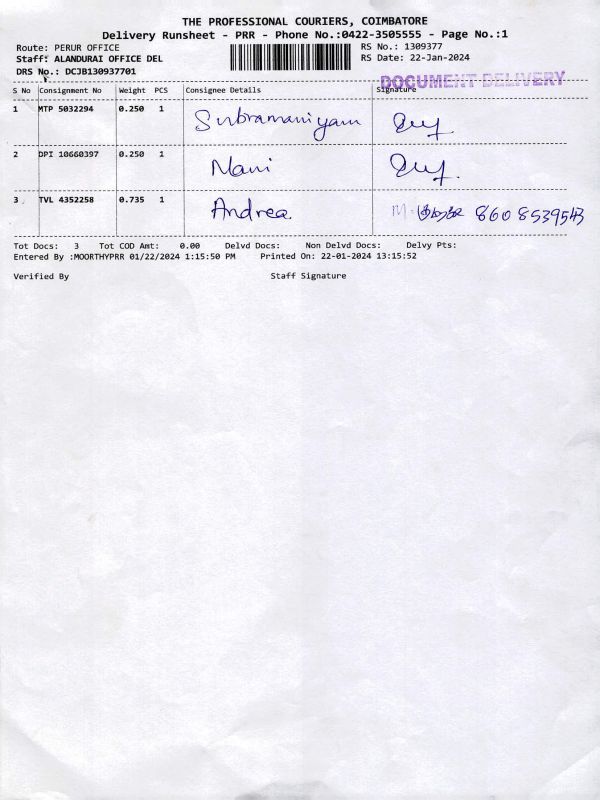 THE PROFESSIONAL COURIERS, COIMBATORE
Delivery Runsheet - PRR - Phone No.:0422-3505555 - Page No.:1
Route: PERUR OFFICE RS No.: 1309377
Staff: ALANDURAI OFFICE DEL RS Date: 22-Jan-2024
DRS No.: DCJB130937701
DOCUMENT DELIVERY
S No Consignment No Weight PCS Consignee Details Signature
1 MTP 5032294 0.250 1 Subramaniyam
2 DPI 10660397 0.250 1 Mani
3 TVL 4352258 0.735 1 Andrea. 8608539543
Tot Docs: 3 Tot COD Amt: 0.00 Delvd Docs: Non Delvd Docs: Delvy Pts:
Entered By :MOORTHYPRR 01/22/2024 1:15:50 PM Printed On: 22-01-2024 13:15:52
Verified By Staff Signature